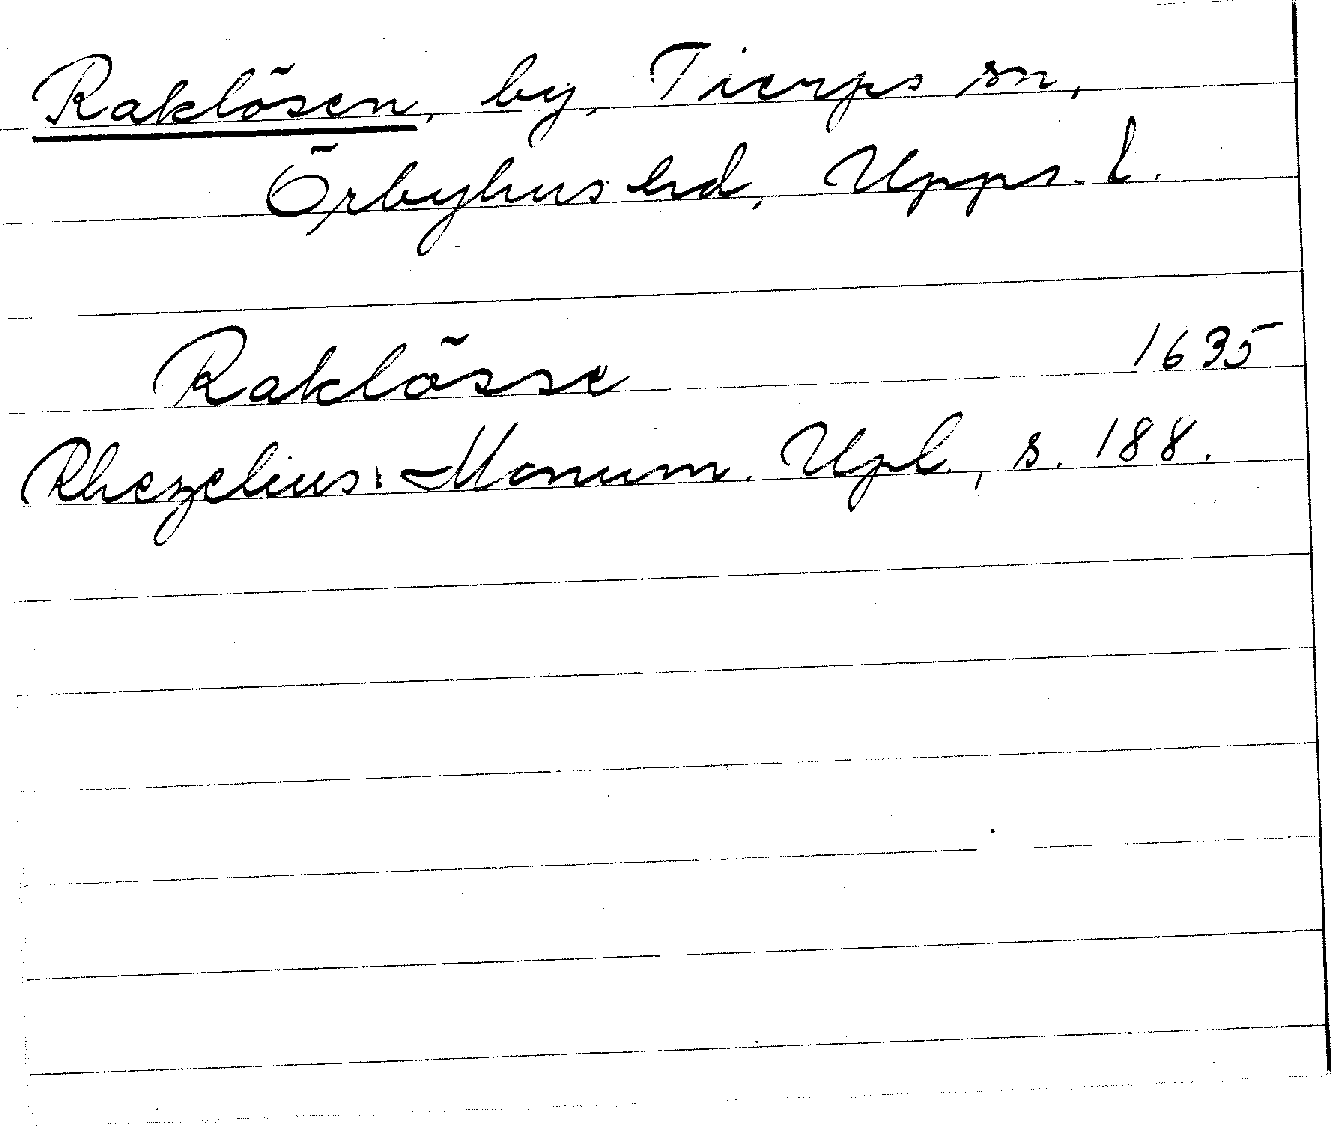 Raklösen, by, Tierps sn,
Örbyhus hd, Upps. l.
Raklösse 1635
Rhezelius: Monum. Upl, s. 188.